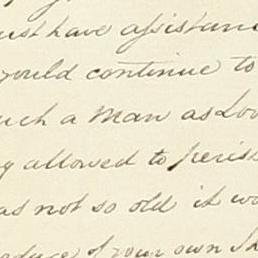 ust have assistanc
would continue to
uch a Man as Lov
y allowed to perish
as not so old it wo
of your own Sh